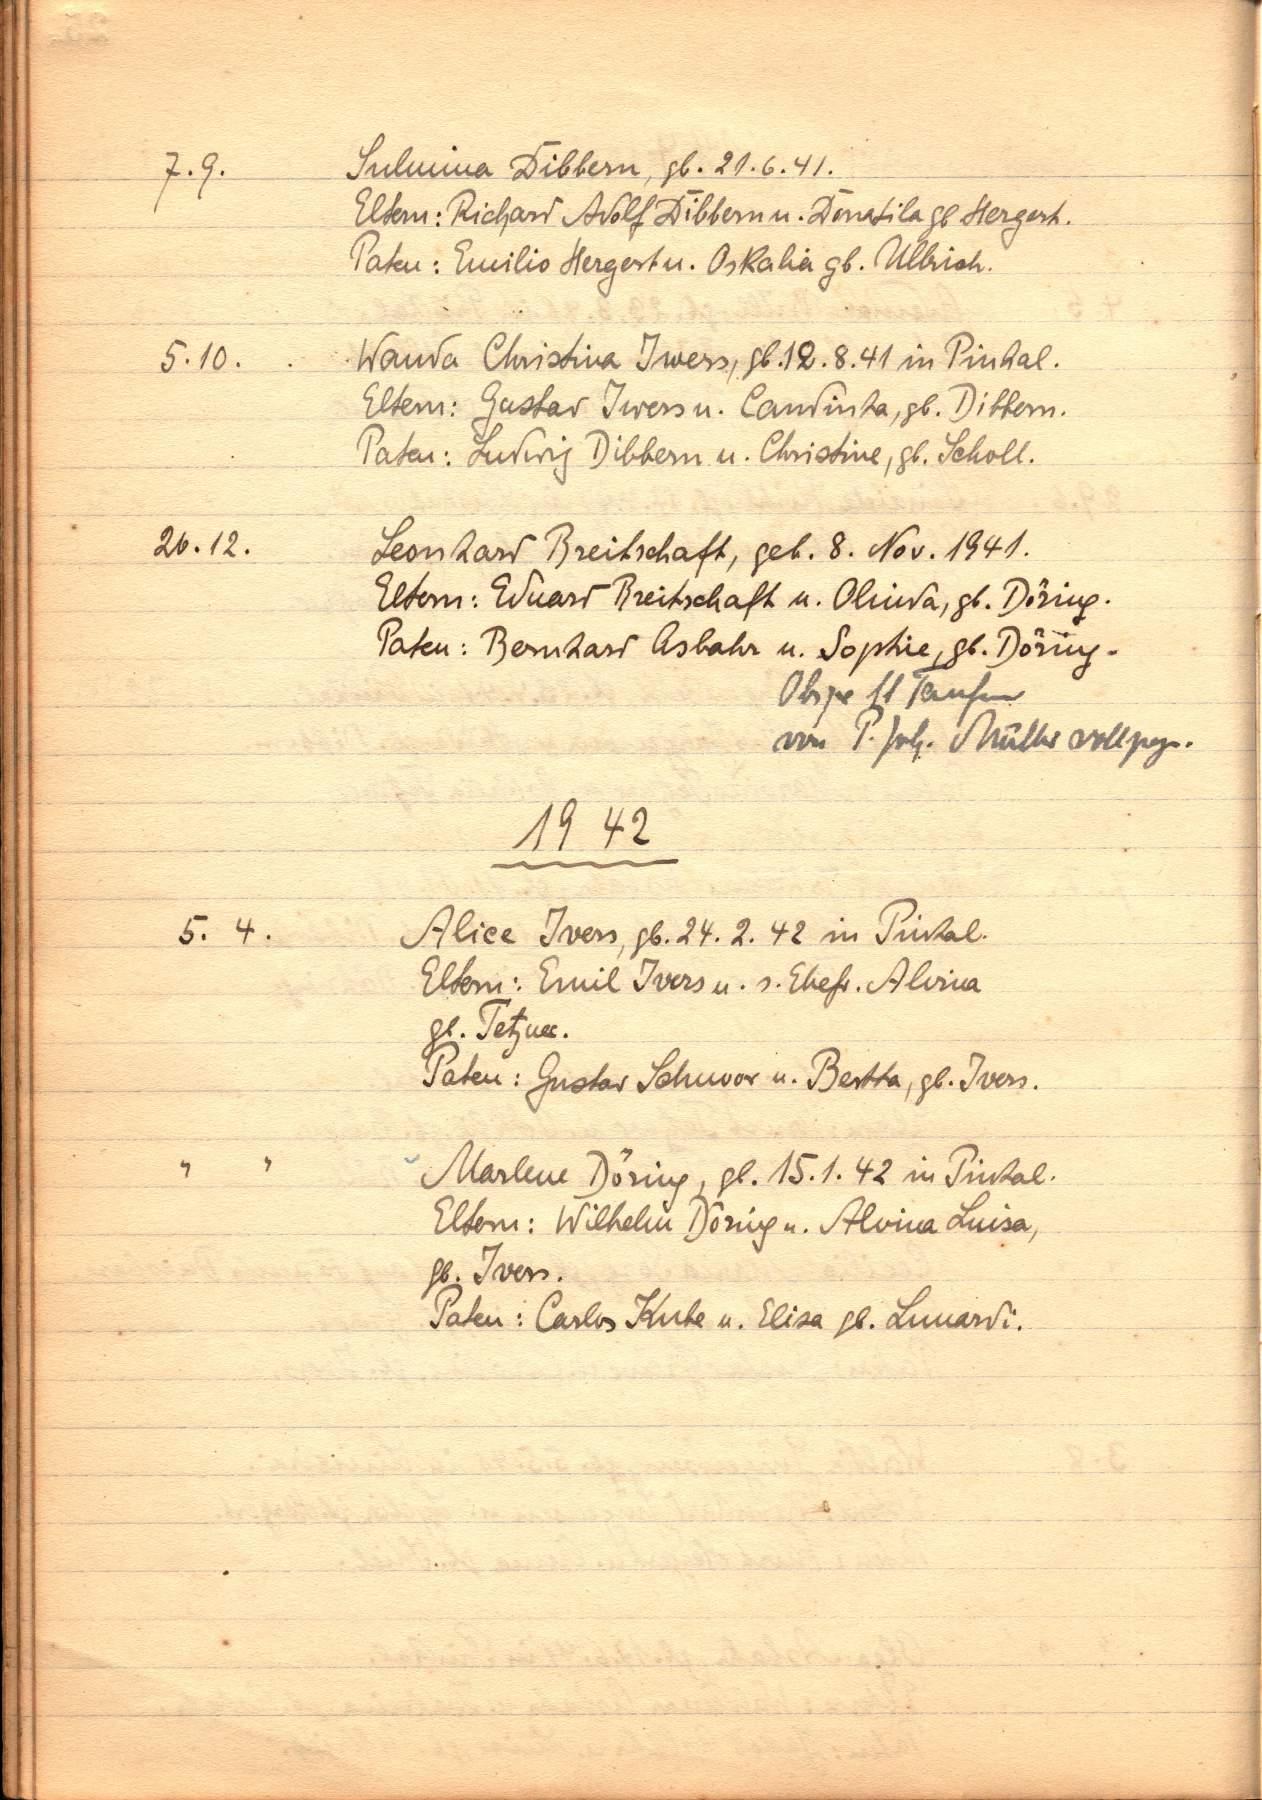 7.9. Sulmina Dibbern, gb. 21.6.41.
Eltern: Richard Adolf Dibbern u. Donatila gb Hergert.
Paten: Emilio Hergert u. Oskalia gb. Ullrich.
5.10. Wanda Christina Iwers, gb. 12.8.41 in Pinhal.
Eltern: Gustav Iwers u. Candinha, gb. Dibbern.
Paten: Ludwig Dibbern u. Christine, gb. Scholl.
26.12. Leonhard Breitschaft, geb. 8. Nov. 1941.
Eltern: Eduard Breitschaft u. Olinda, gb. Döring.
Paten: Bernhard Asbahr u. Sophie, gb. Döring.
Obige 11 Taufen
von P. Joh. Müller vollzogen.
1942
5. 4. Alice Ivers, gb. 24. 2. 42 in Pinhal.
Eltern: Emil Ivers u. s. Ehefr. Alvina
gb. Tetzner.
Paten: Gustav Schwoor u. Bertha, gb. Ivers.
" " Marlene Döring, gb. 15.1.42 in Pinhal.
Eltern: Wilhelm Döring u. Alvina Luisa,
gb. Ivers.
Paten: Carlos Kube u. Elisa gb. Lunardi.